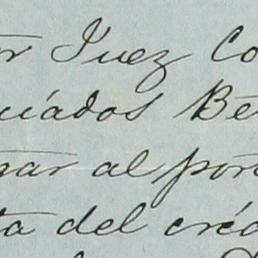 or Juez Co
cuádos Be
nar al por
ta del créd